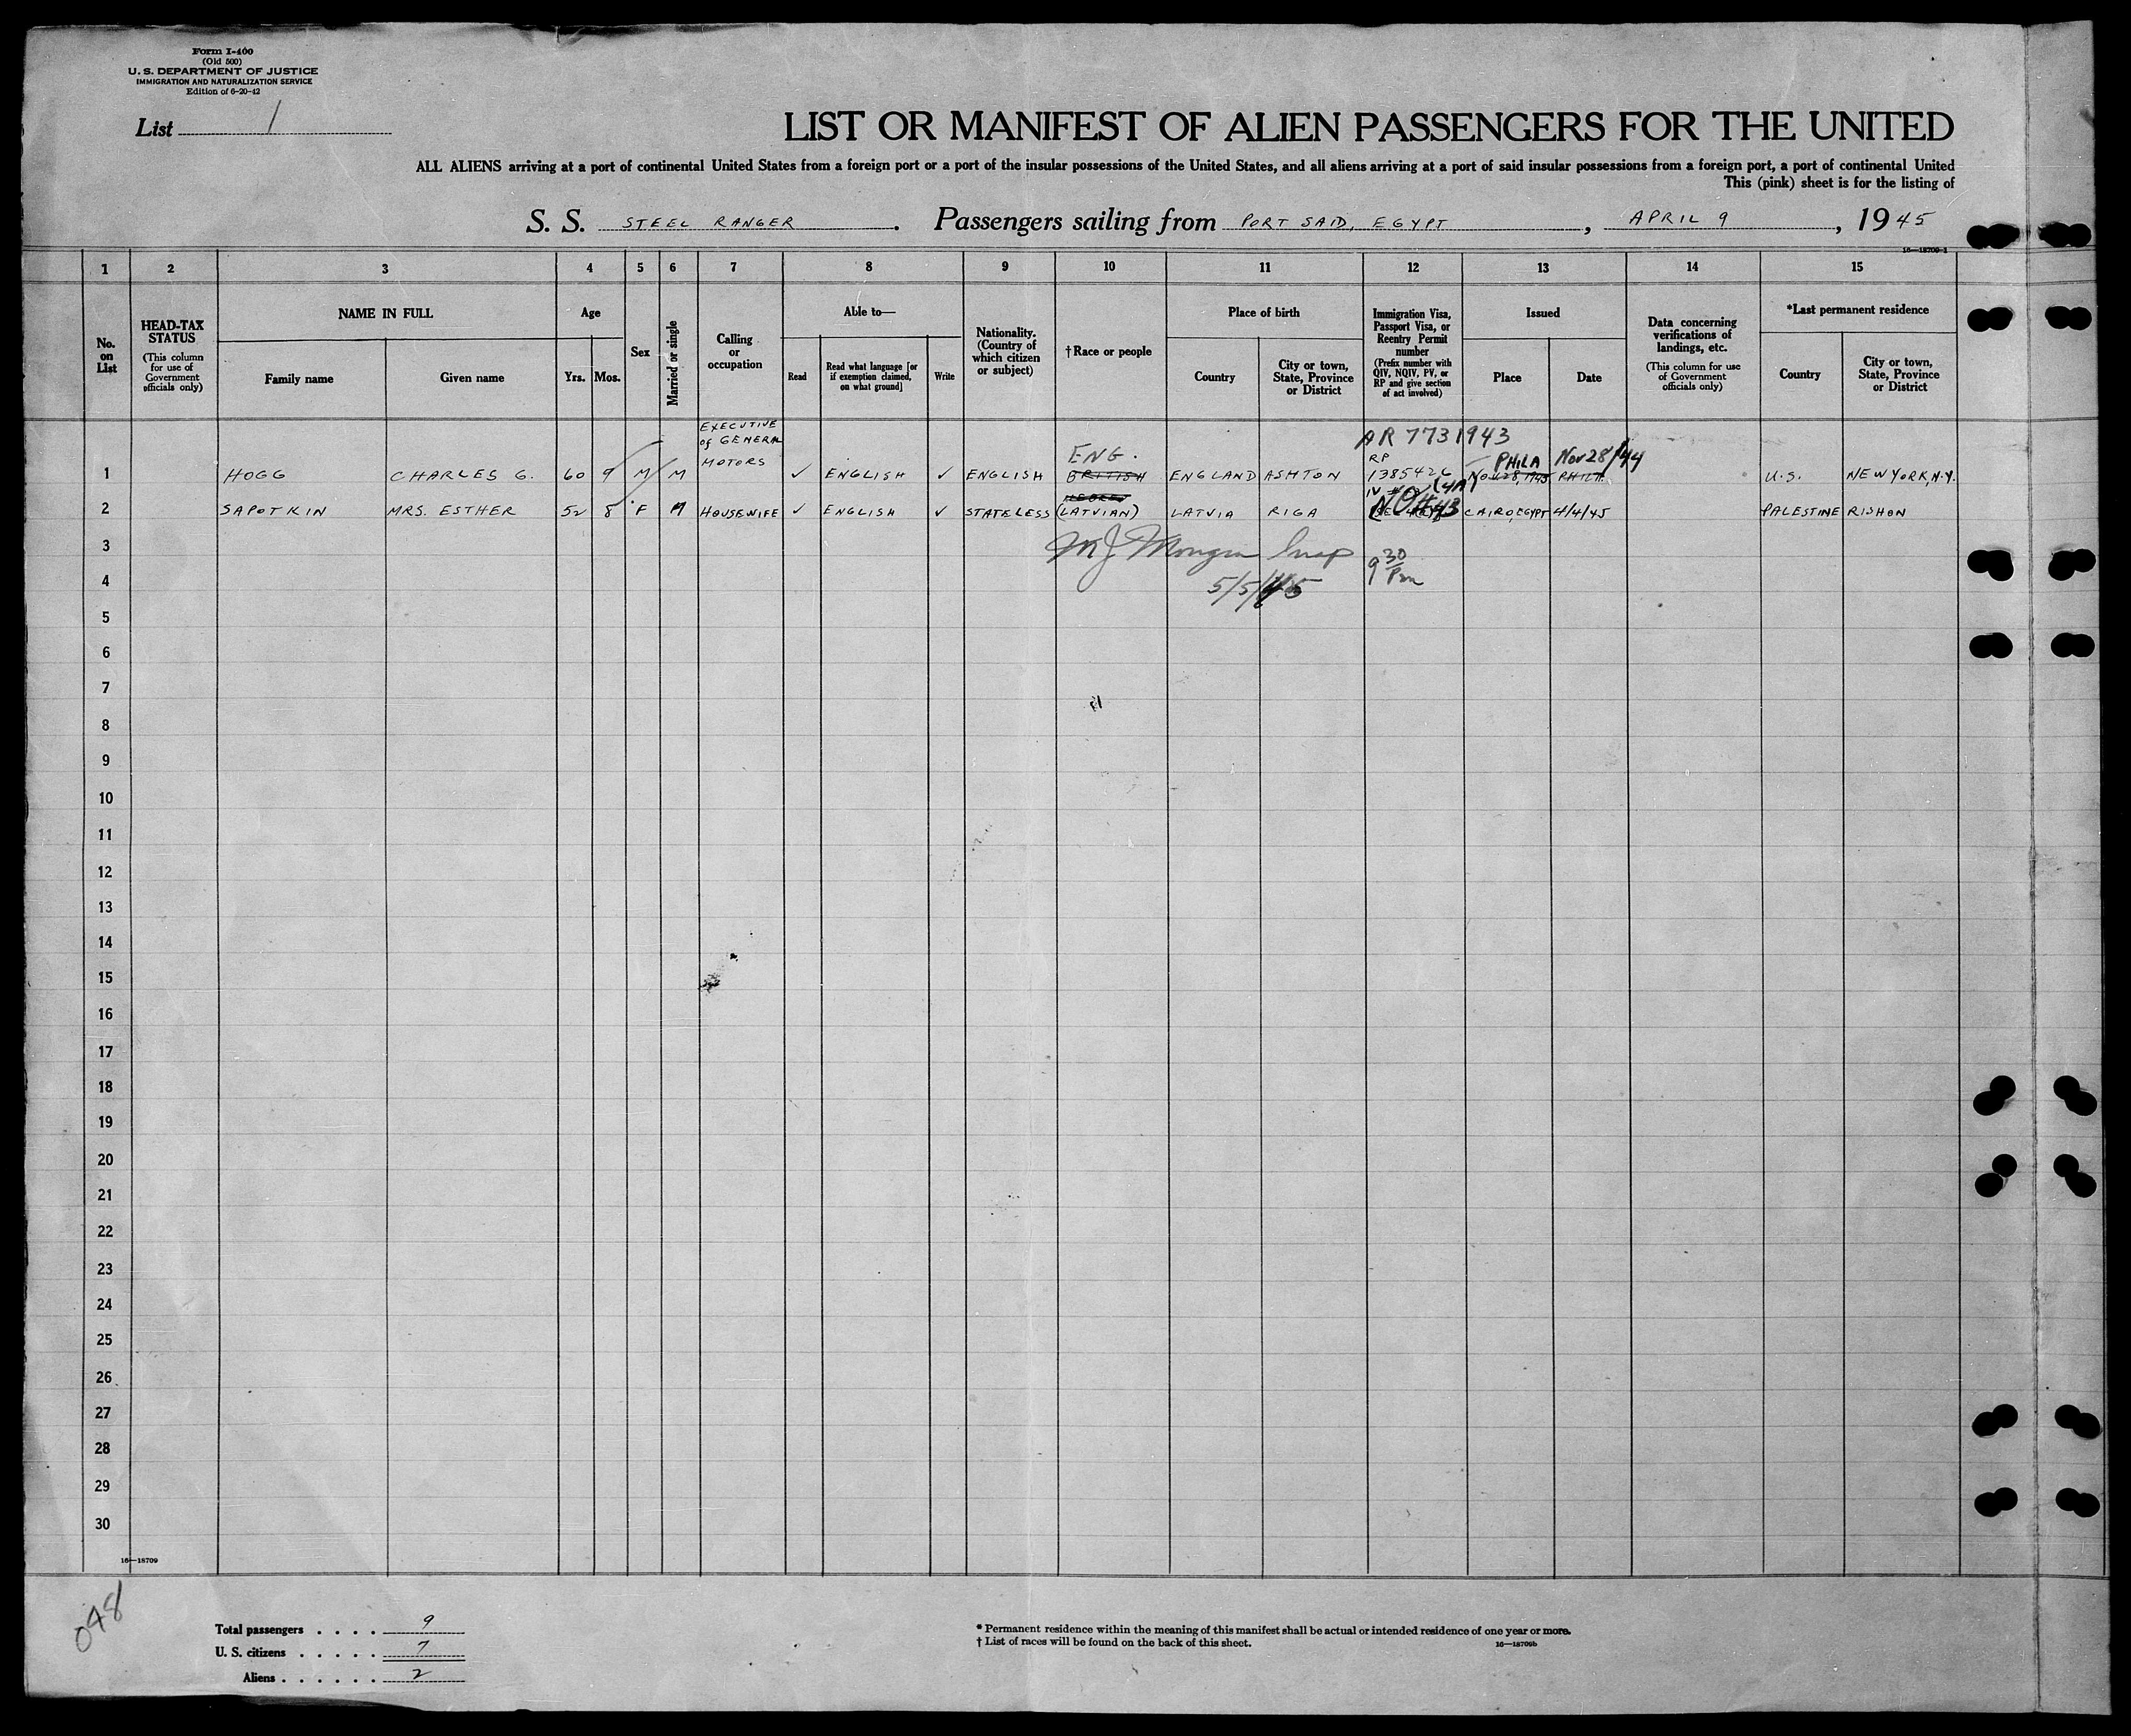 Form I-400
(Old 500)
U. S. DEPARTMENT OF JUSTICE
IMMIGRATION AND NATURALIZATION SERVICE
Edition of 6-20-42
List 1
LIST OR MANIFEST OF ALIEN PASSENGERS FOR THE UNITED
ALL ALIENS arriving at a port of continental United States from a foreign port or a port of the insular possessions of the United States, and all aliens arriving at a port of said insular possessions from a foreign port, a port of continental United
This (pink) sheet is for the listing of
S. S. STEEL RANGER. Passengers sailing from PORT SAID, EGYPT, APRIL 9, 1945
16—18709-1
1 2 3 4 5 6 7 8 9 10 11 12 13 14 15
No. on List
HEAD-TAX STATUS
(This column for use of Government officials only)
NAME IN FULL
Family name
Given name
Age
Yrs. Mos.
Sex
Married or single
Calling or occupation
Able to—
Read
Read what language [or if exemption claimed, on what ground]
Write
Nationality. (Country of which citizen or subject)
†Race or people
Place of birth
Country
City or town, State, Province or District
Immigration Visa, Passport Visa, or Reentry Permit number
(Prefix number with QIV, NQIV, PV, or RP and give section of act involved)
Issued
Place
Date
Data concerning verifications of landings, etc.
(This column for use of Government officials only)
*Last permanent residence
Country
City or town, State, Province or District
EXECUTIVE
of GENERAL
MOTORS
AR 7731943
ENG.
RP
PHILA Nov 28/44
1 HOGG CHARLES G. 60 9 M M ✓ ENGLISH ✓ ENGLISH BRITISH ENGLAND ASHTON 1385426 Nov 28, 1945 PHILA. U.S. NEW YORK, N.Y.
2 SAPOTKIN MRS. ESTHER 52 8 F M HOUSEWIFE ✓ ENGLISH ✓ STATELESS (LATVIAN) LATVIA RIGA CAIRO, EGYPT 4/4/45 PALESTINE RISHON
3
9 30 Pm
4
5/5/45
5
6
7
8
9
10
11
12
13
14
15
16
17
18
19
20
21
22
23
24
25
26
27
28
29
30
16—18709
048
Total passengers . . . . 9
U. S. citizens . . . . . 7
Aliens . . . . . . 2
* Permanent residence within the meaning of this manifest shall be actual or intended residence of one year or more.
† List of races will be found on the back of this sheet.
16—18709b